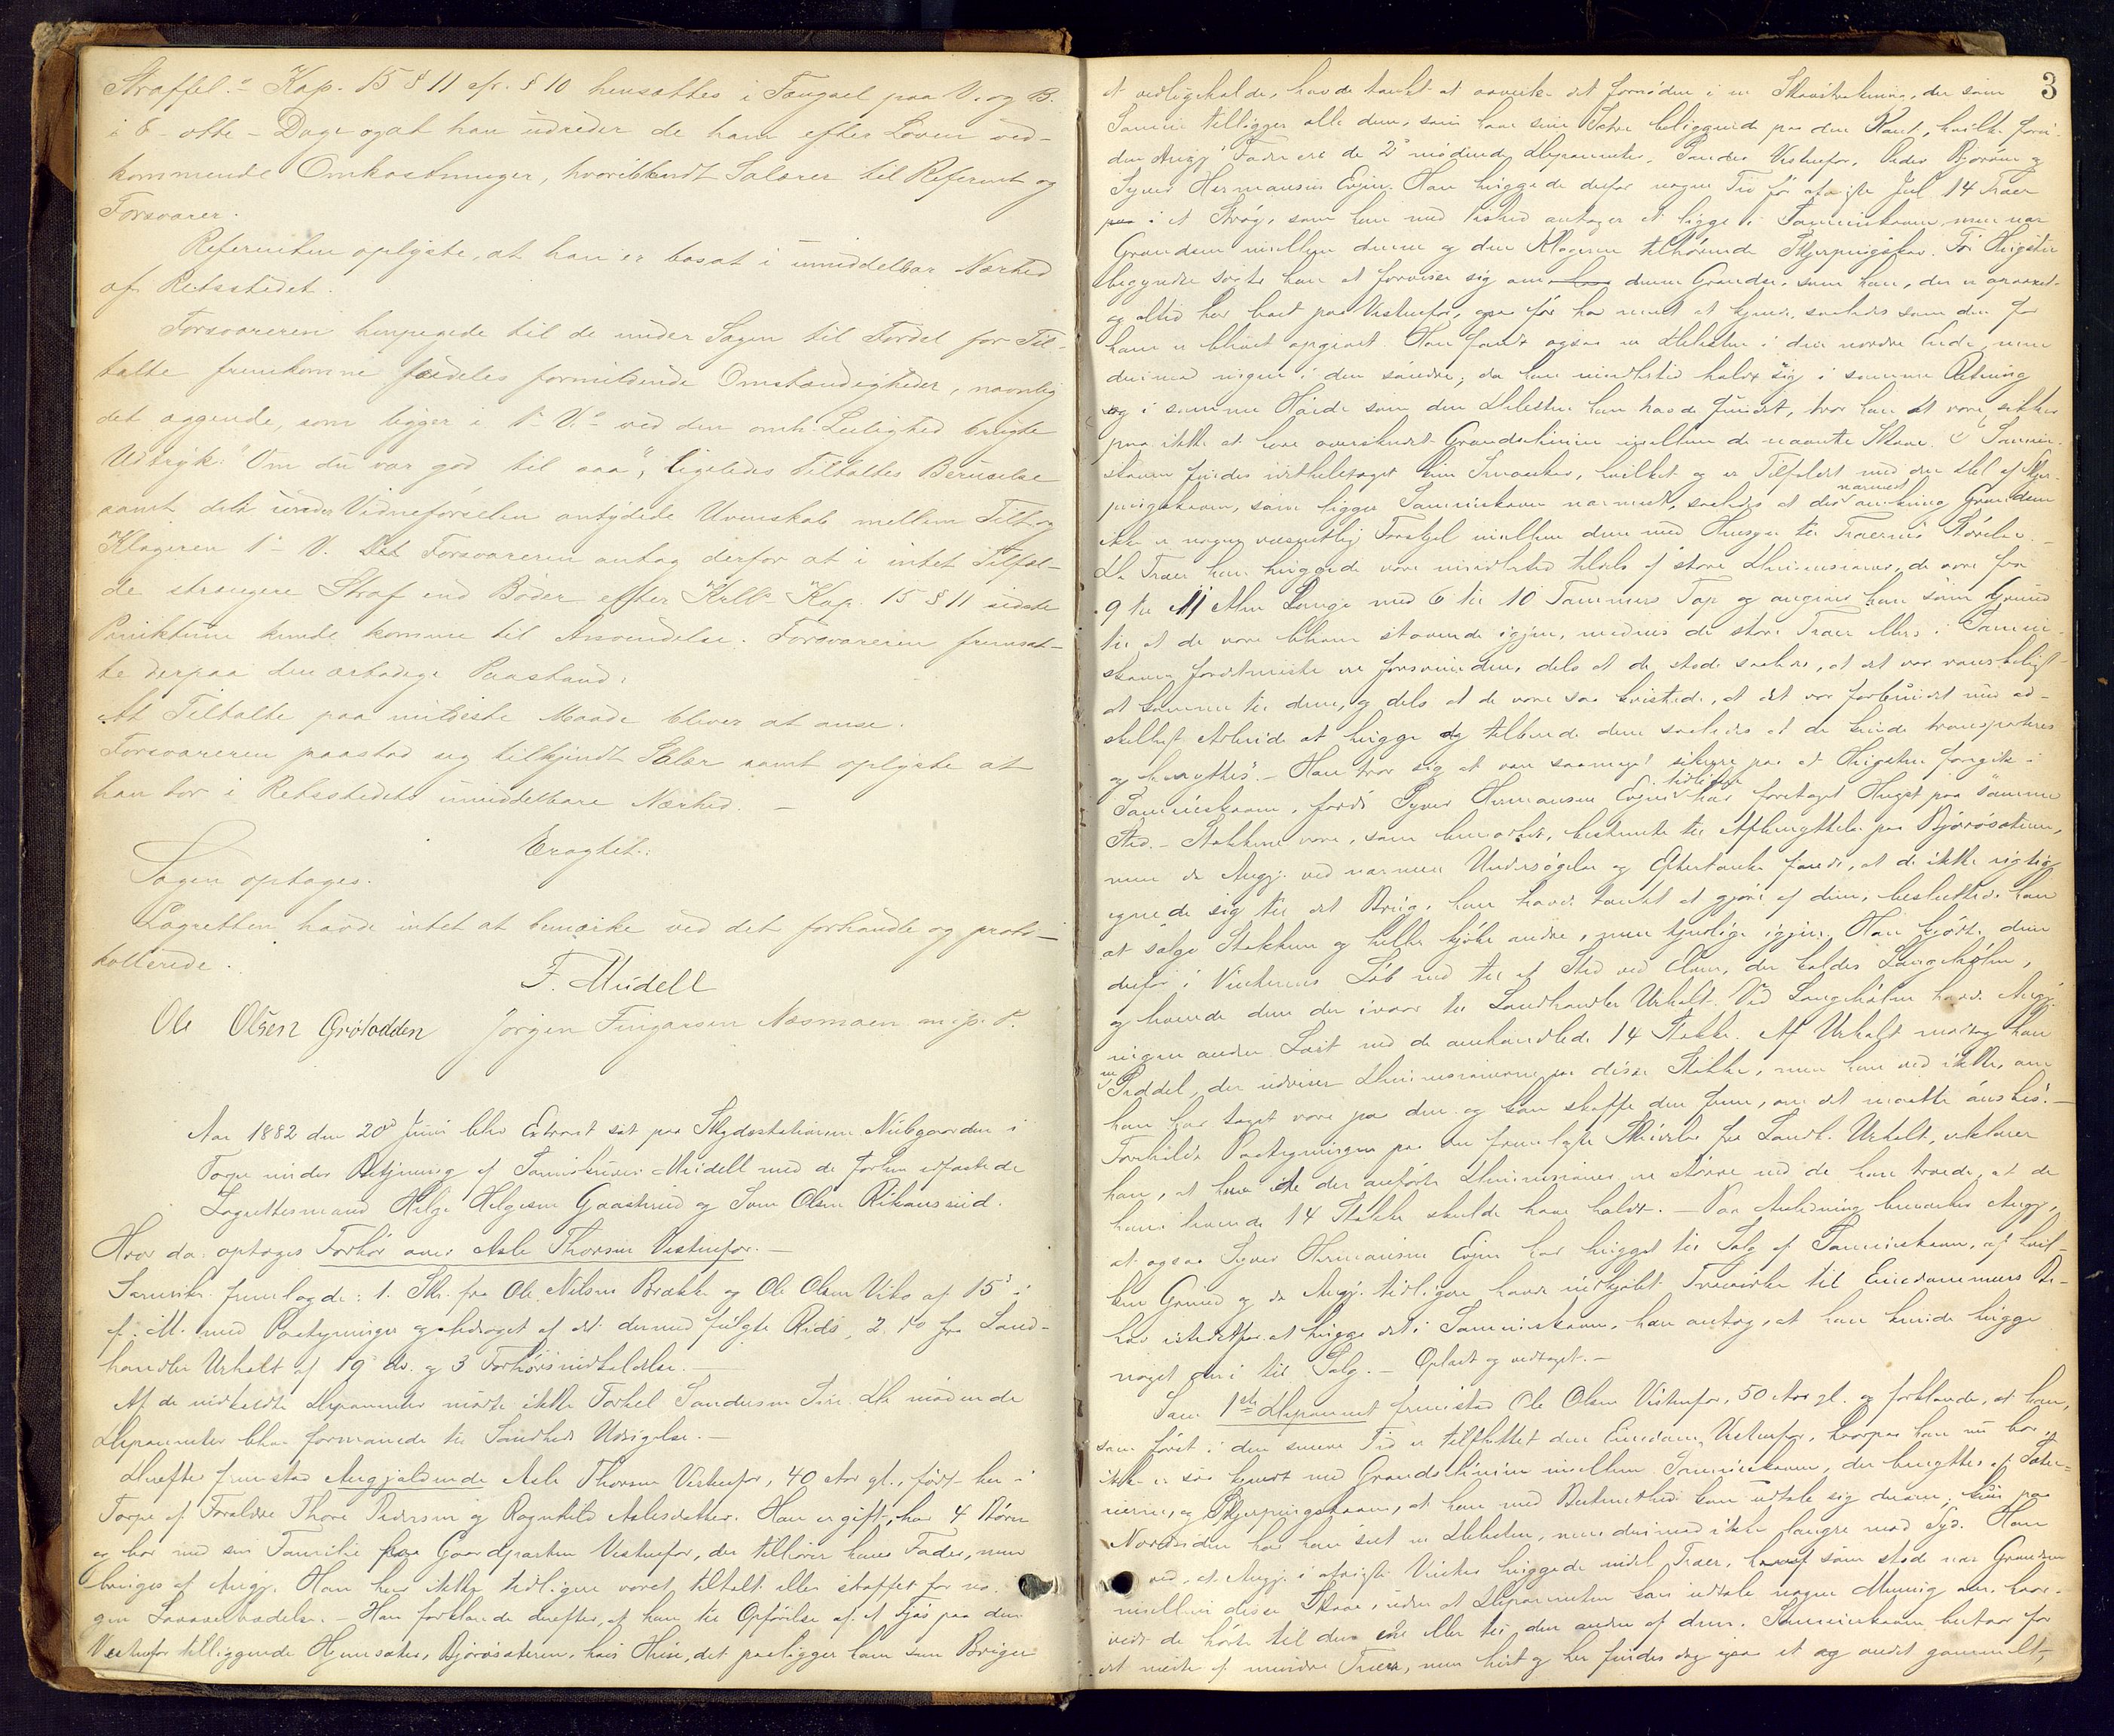 Straffel.s Kap. 15 § 11 cfr. § 10 hensættes i Fængsel paa V. og B.
i 8 - otte - Dage og at han udreder de ham efter Loven ved-
kommende Omkostninger, hvoriblandt Salærer til Referent og
Forsvarer.
Referenten oplyste, at han er bosat i umiddelbar Nærhed
af Retsstedet.
Forsvareren henpegede til de under Sagen til Fordel for Til-
talte fremkomne særdeles formildende Omstændigheder, navnlig
det æggende, som ligger i 1ste V.s ved den omh. Leilighed brugte
Udtryk: "Om du var god til aa", ligeledes Tiltaltes Beruselse
samt det under Vidneførselen antydede Uvenskab mellem Tilt. og
Klageren 1ste V. Forsvareren antog derfor at i intet Tilfæl-
de strengere Straf end Bøder efter Krll. Kap. 15 § 11 sidste
Punktum kunde komme til Anvendelse. Forsvareren fremsat-
te derpaa den ærbødige Paastand:
At Tiltalte paa mildeste Maade bliver at anse.
Forsvareren paastod sig tilkjendt Salær samt oplyste at
han bor i Retsstedets umiddelbare Nærhed. -
Eragtet:
Sagen optages.
Lagretten havde intet at bemærke ved det forhandle og proto-
kollerede.
F. Meidell
Ole Olsen Grøtodden Jørgen Fingarsen Næsmoen m. p. P.
Aar 1882 den 20de Juni blev Extraret sat paa Skydsstationen Nubgaarden i
Torpe under Betjening af Sorenskriver Meidell med de forhen edfæstede
Lagrettesmænd Helge Helgesen Gaastrud og Iver Olsen Rikansrud.
Hvor da: optages Forhør over Asle Thoresen Vestenfor. -
Sorenskr. fremlagde: 1. Skr. fra Ole Nilsen Brække og Ole Olsen Viko af 15de i
f. M. med Paategninger og ledsaget af det dermed fulgte Rids, 2. do fra Land-
handler Urhelt af 19 ds. og 3 Forhørsindkaldelse. -
Af de indkaldte Deponenter mødte ikke Torkel Sanderson Ture. De mødende
Deponenter blev formanede til Sandheds Udsigelse. -
Derefter fremstod Angjældende Asle Thoresen Vestenfor, 40 Aar gl., født her i
Torpe af Forældre Thore Pedersen og Ragnhild Aslesdatter. Han er gift, har 4 Børn
og bor med sin Familie paa Gaardparten Vestenfor, der tilhører hans Fader, men
bruges af Angj. Han har ikke tidligere været tiltalt eller straffet for no-
gen Lovovertrædelse. - Han forklarede derefter, at han til Opførelse af et Fjøs paa den
Vestenfor tilliggende Hjemsæter, Bjørøsæteren, hvis Huse, det paaligger ham som Bruger
3
at vedligeholde, havde tænkt at aavirke det fornødne i en Skovstrækning, der som
Sameie tilligger alle dem, som have sine Sætre beliggende paa den Kant, hvilke foru-
den Angj.s Fader ere de 2de mødende Deponenter, Sander Vestenfor, Peder Bjørøen og
Syver Hermansen Evjen. Han huggede derfor nogen Tid før afvigte Jul 14 Træer
i et Strøg, som han med Vished antager at ligge i Sameieskoven, men nær
Grændsen mellem denne og den Klageren tilhørende Skjerpingskov. Før Hugsten
begyndte søgte han at forvisse sig om denne Grændse, som han, der er opvoxet
og altid har boet paa Vestenfor, ogsaa før har ment at kjende, saaledes som den for
ham er blevet opgivet. Han fandt ogsaa en Delesten i den nordre Ende, men
derimod ingen i den søndre, da han imidlertid holdt sig i samme Retning
og i samme Høide som den Delesten han havde fundet, tror han at være sikker
paa ikke at have overskredet Grændselinien mellem de nævnte Skove. I Sameie-
skoven findes idethele taget kun Smaaskov, hvilket og er Tilfældet med den Del af Skjer-
pingskoven, som ligger Sameieskoven nærmest, saaledes at der nærmest omkring Grændsen
ikke er nogen væsentlig Forskjel mellem dem med Hensyn til Træernes Størrelse. -
De Træer han huggede vare imidlertid tildels af større Dimensioner, de vare fra
9 til 11 Alen Længe med 6 til 10 Tommers Top og angives han som Grund
til at de vare blevne staaende igjen, medens de store Træer ellers i Sameie-
skoven fordetmeste ere forsvundne, dels at de stode saaledes, at det var vanskeligt
at komme til dem, og dels at de vare saa kvistede, at det var forbundet med ad-
skilligt Arbeide at hugge og tilberede dem saaledes at de kunde transporteres
og benyttes. - Han tror sig at være saameget sikrere paa at Hugsten foregik i
Sameieskoven, fordi Syver Hermansen Evjen tidligere har foretaget Hugst paa samme
Sted. - Stokkene vare, som bemærket, bestemte til Afbenyttelse paa Bjørøsæteren,
men da Angj. ved nærmere Undersøgelse og Eftertanke fandt, at de ikke rigtig
egnede sig til det Brug, han havde tænkt at gjøre af dem, besluttede han
at sælge Stokkene og heller kjøbe andre, mere tjenlige igjen. Han kjørte dem
derfor i Vinterens Løb ned til et Sted ved Elven, der kaldes Langeholm,
og leverede dem der ivaar til Landhandler Urhelt. Ved Langeholm havde Angj.
ingen anden Last end de omhandlede 14 Stokke. Af Urhelt modtog han
en Seddel, der udviser Dimensionerne paa disse Stokke, men han ved ikke, om
han har taget vare paa den og kan skaffe den frem, om det maatte ønskes. -
Foreholdt Paategningen paa den fremlagte Skrivelse fra Landh. Urhelt, erklærer
han, at de der anførte Dimensioner ere større end de han troede, at de
han leverede 14 Stokke skulde have holdt. - Paa Anledning bemærker Angj.,
at ogsaa Syver Hermansen Evjen har hugget til Salg af Sameieskoven, af hvil-
ken Grund og da Angj. tidligere havde indkjøbt Trævirke til Eiendommens Be-
hov istedetfor at hugge det i Sameieskoven, han antog, at han kunde hugge
noget deri til Salg. - Oplæst og vedtaget. -
Som 1ste Deponent fremstod Ole Olsen Vestenfor, 50 Aar gl. og forklarede, at han,
som først i den senere Tid er tilflyttet den Eiendom Vestenfor, hvorpaa han nu bor,
ikke er saa kjendt med Grændselinien mellem Sameieskoven, der benyttes af Sæter-
eierne, og Skjerpingskoven, at han med Bestemthed kan udtale sig derom; kun paa
Nordsiden har han seet en Delesten, men derimod ikke længre mod Syd. Han
ved, at Angj. i afvigte Vinter huggede endel Træer, hvoraf som stod nær Grændsen
mellem disse Skove, uden at Deponenten kan udtale nogen Mening om, hvor-
vidt de hørte til den ene eller til den anden af dem. Sameieskoven bestaar for
det meste af mindre Træer, men hist og her findes dog ogsaa et og andet gammelt,